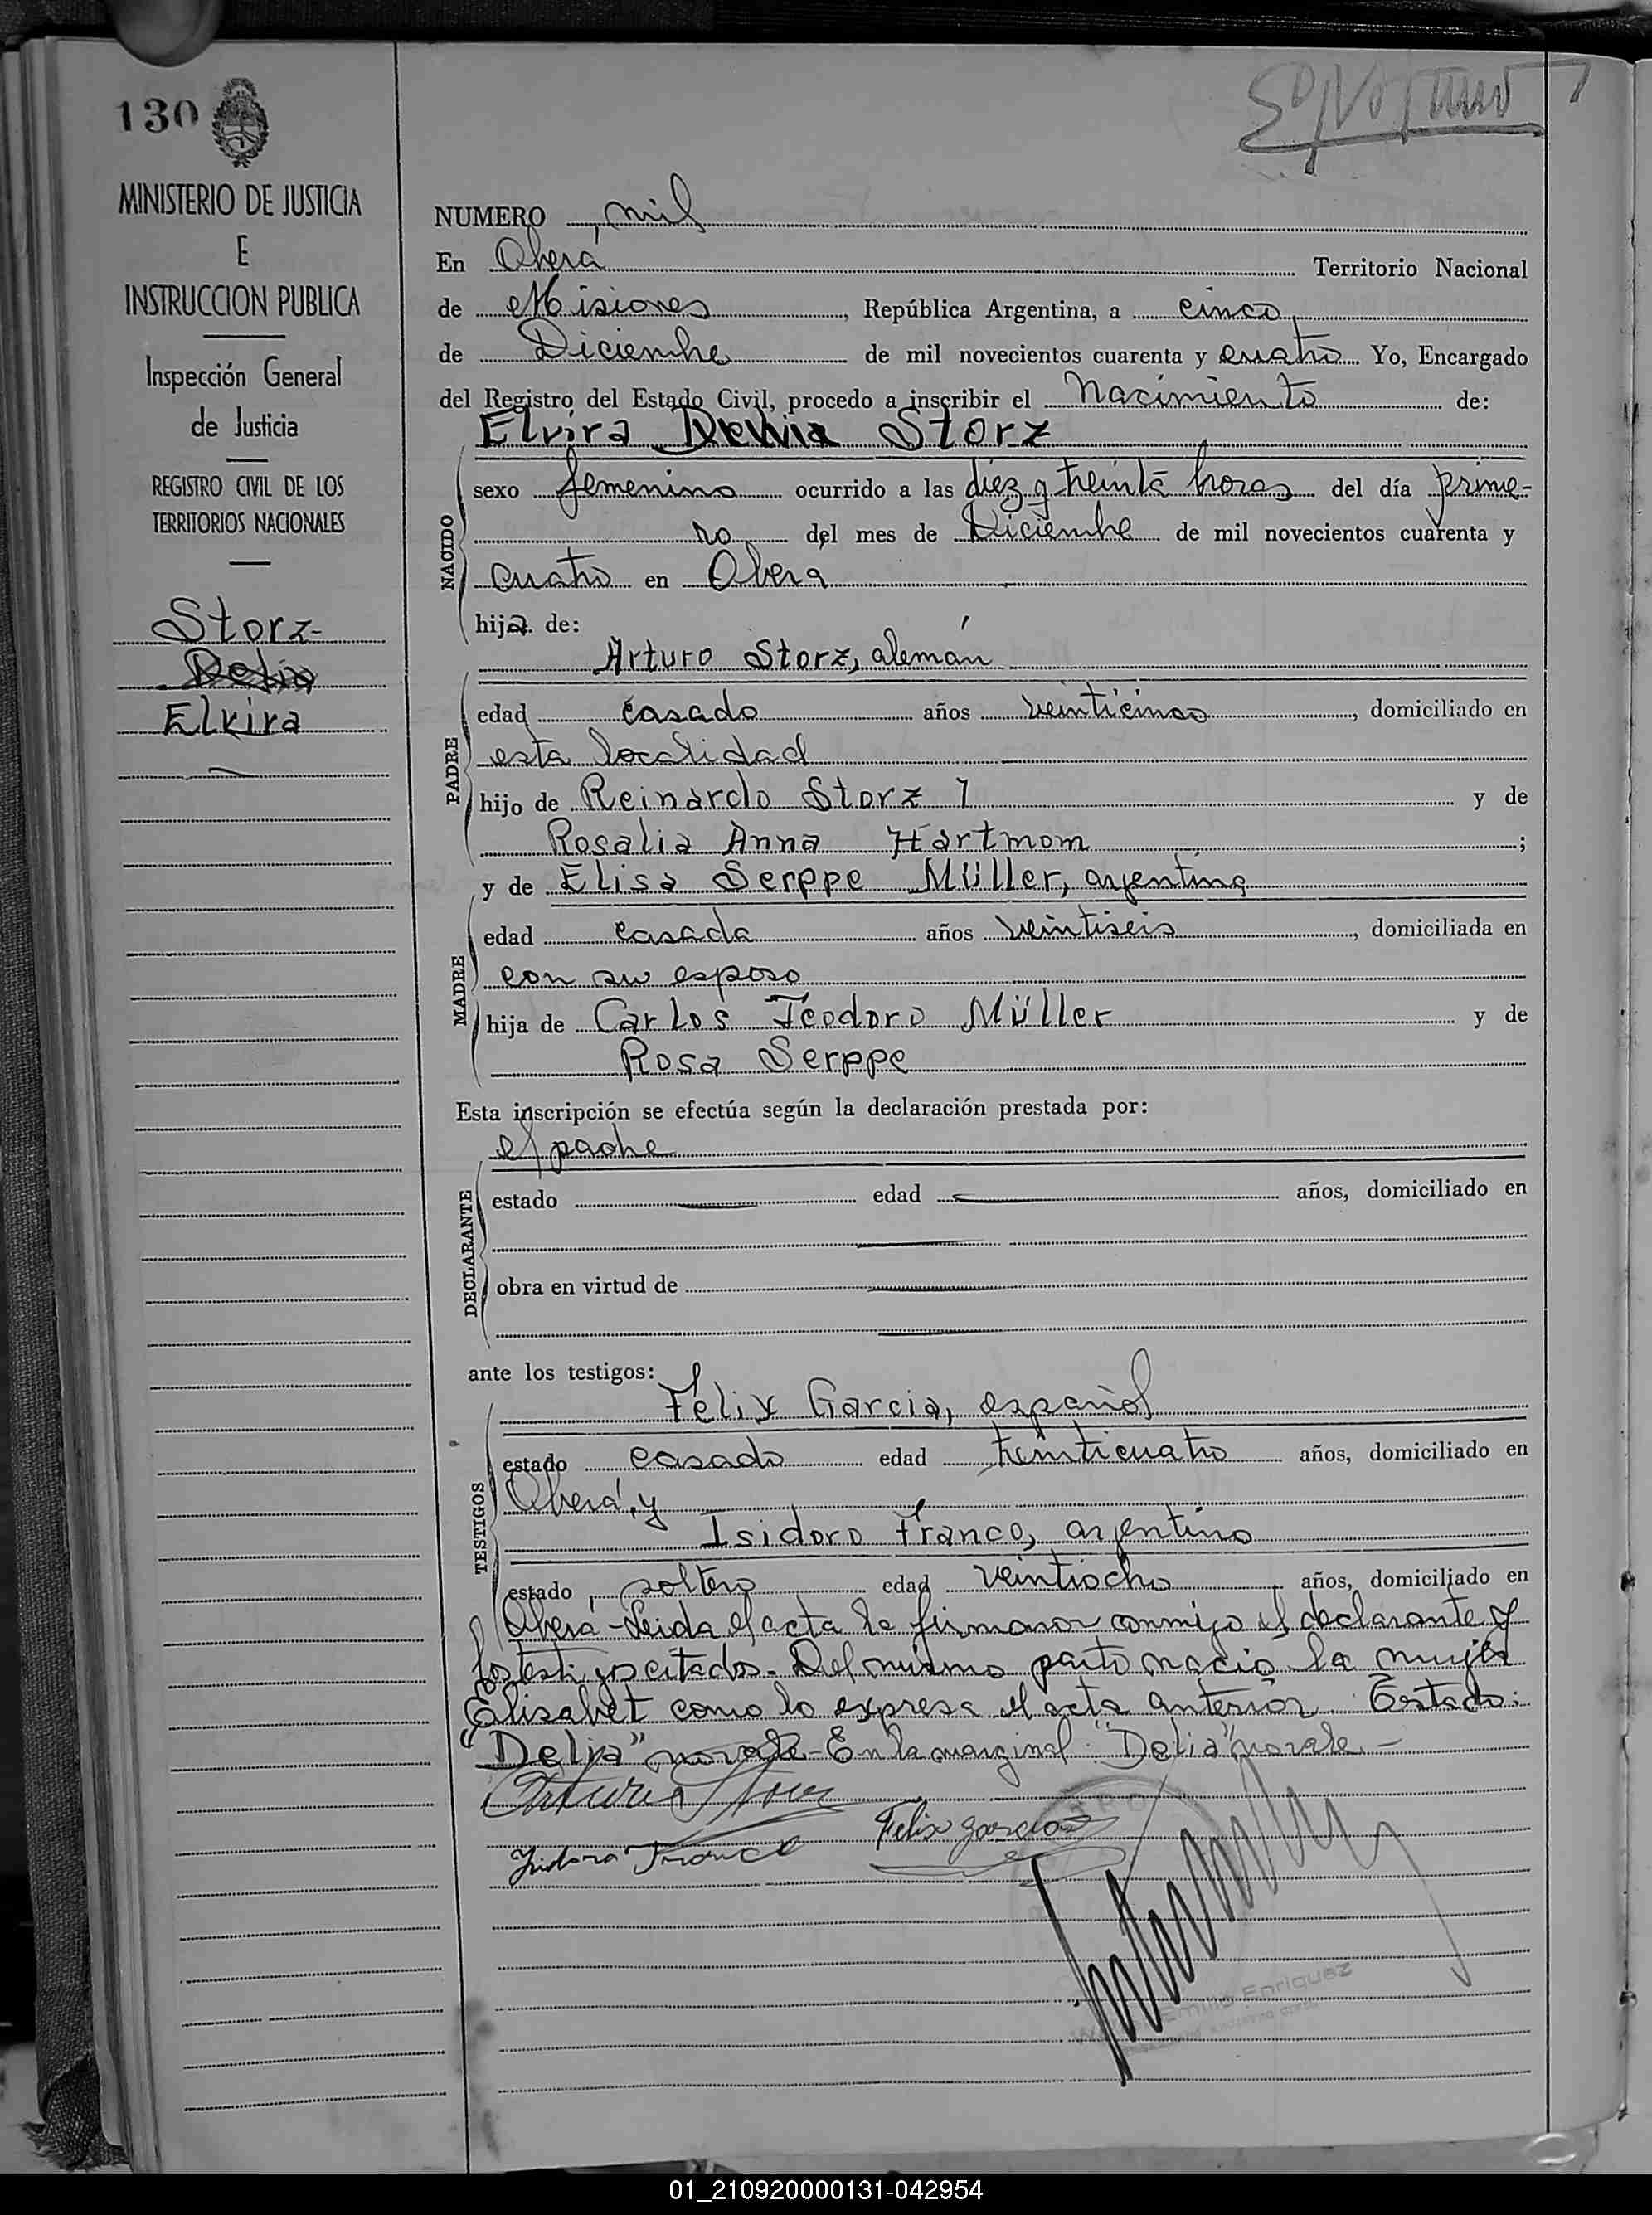 130
MINISTERIO DE JUSTICIA
E
INSTRUCCION PUBLICA
Inspección General
de Justicia
REGISTRO CIVIL DE LOS
TERRITORIOS NACIONALES
Storz-
Delia
Elvira
NUMERO mil
En Oberá Territorio Nacional
de Misiones, República Argentina, a cinco
de Diciembre de mil novecientos cuarenta y cuatro Yo, Encargado
del Registro del Estado Civil, procedo a inscribir el Nacimiento de:
Elvira Delia Storz
NACIDO
sexo femenino ocurrido a las diez y treinta horas del día prime-
ro del mes de Diciembre de mil novecientos cuarenta y
cuatro en Obera
hija de:
Arturo Storz, alemán
PADRE
edad casado años veinticinco, domiciliado en
esta localidad
hijo de Reinardo Storz y de
Rosalia Anna Hartmom;
y de Elisa Serppe Müller, argentina
MADRE
edad casada años veintiseis, domiciliada en
con su esposo
hija de Carlos Teodoro Müller y de
Rosa Serppe
Esta inscripción se efectúa según la declaración prestada por:
el padre
DECLARANTE
estado edad años, domiciliado en
obra en virtud de
ante los testigos:
Félix Garcia, español
TESTIGOS
estado casado edad treinticuatro años, domiciliado en
Oberá, y
Isidoro Franco, argentino
estado soltero edad veintiocho años, domiciliado en
Oberá - Leida el acta la firmaron conmigo el declarante y
los testigos citados - Del mismo parto nacio la mujer
Elisabet como lo expresa el acta anterior. Testado:
"Delia" no vale - En la marginal "Delia" no vale. -
Arturo Storz
Felix Garcia
Isidoro Franco
Emilio Enriquez
01_210920000131-042954